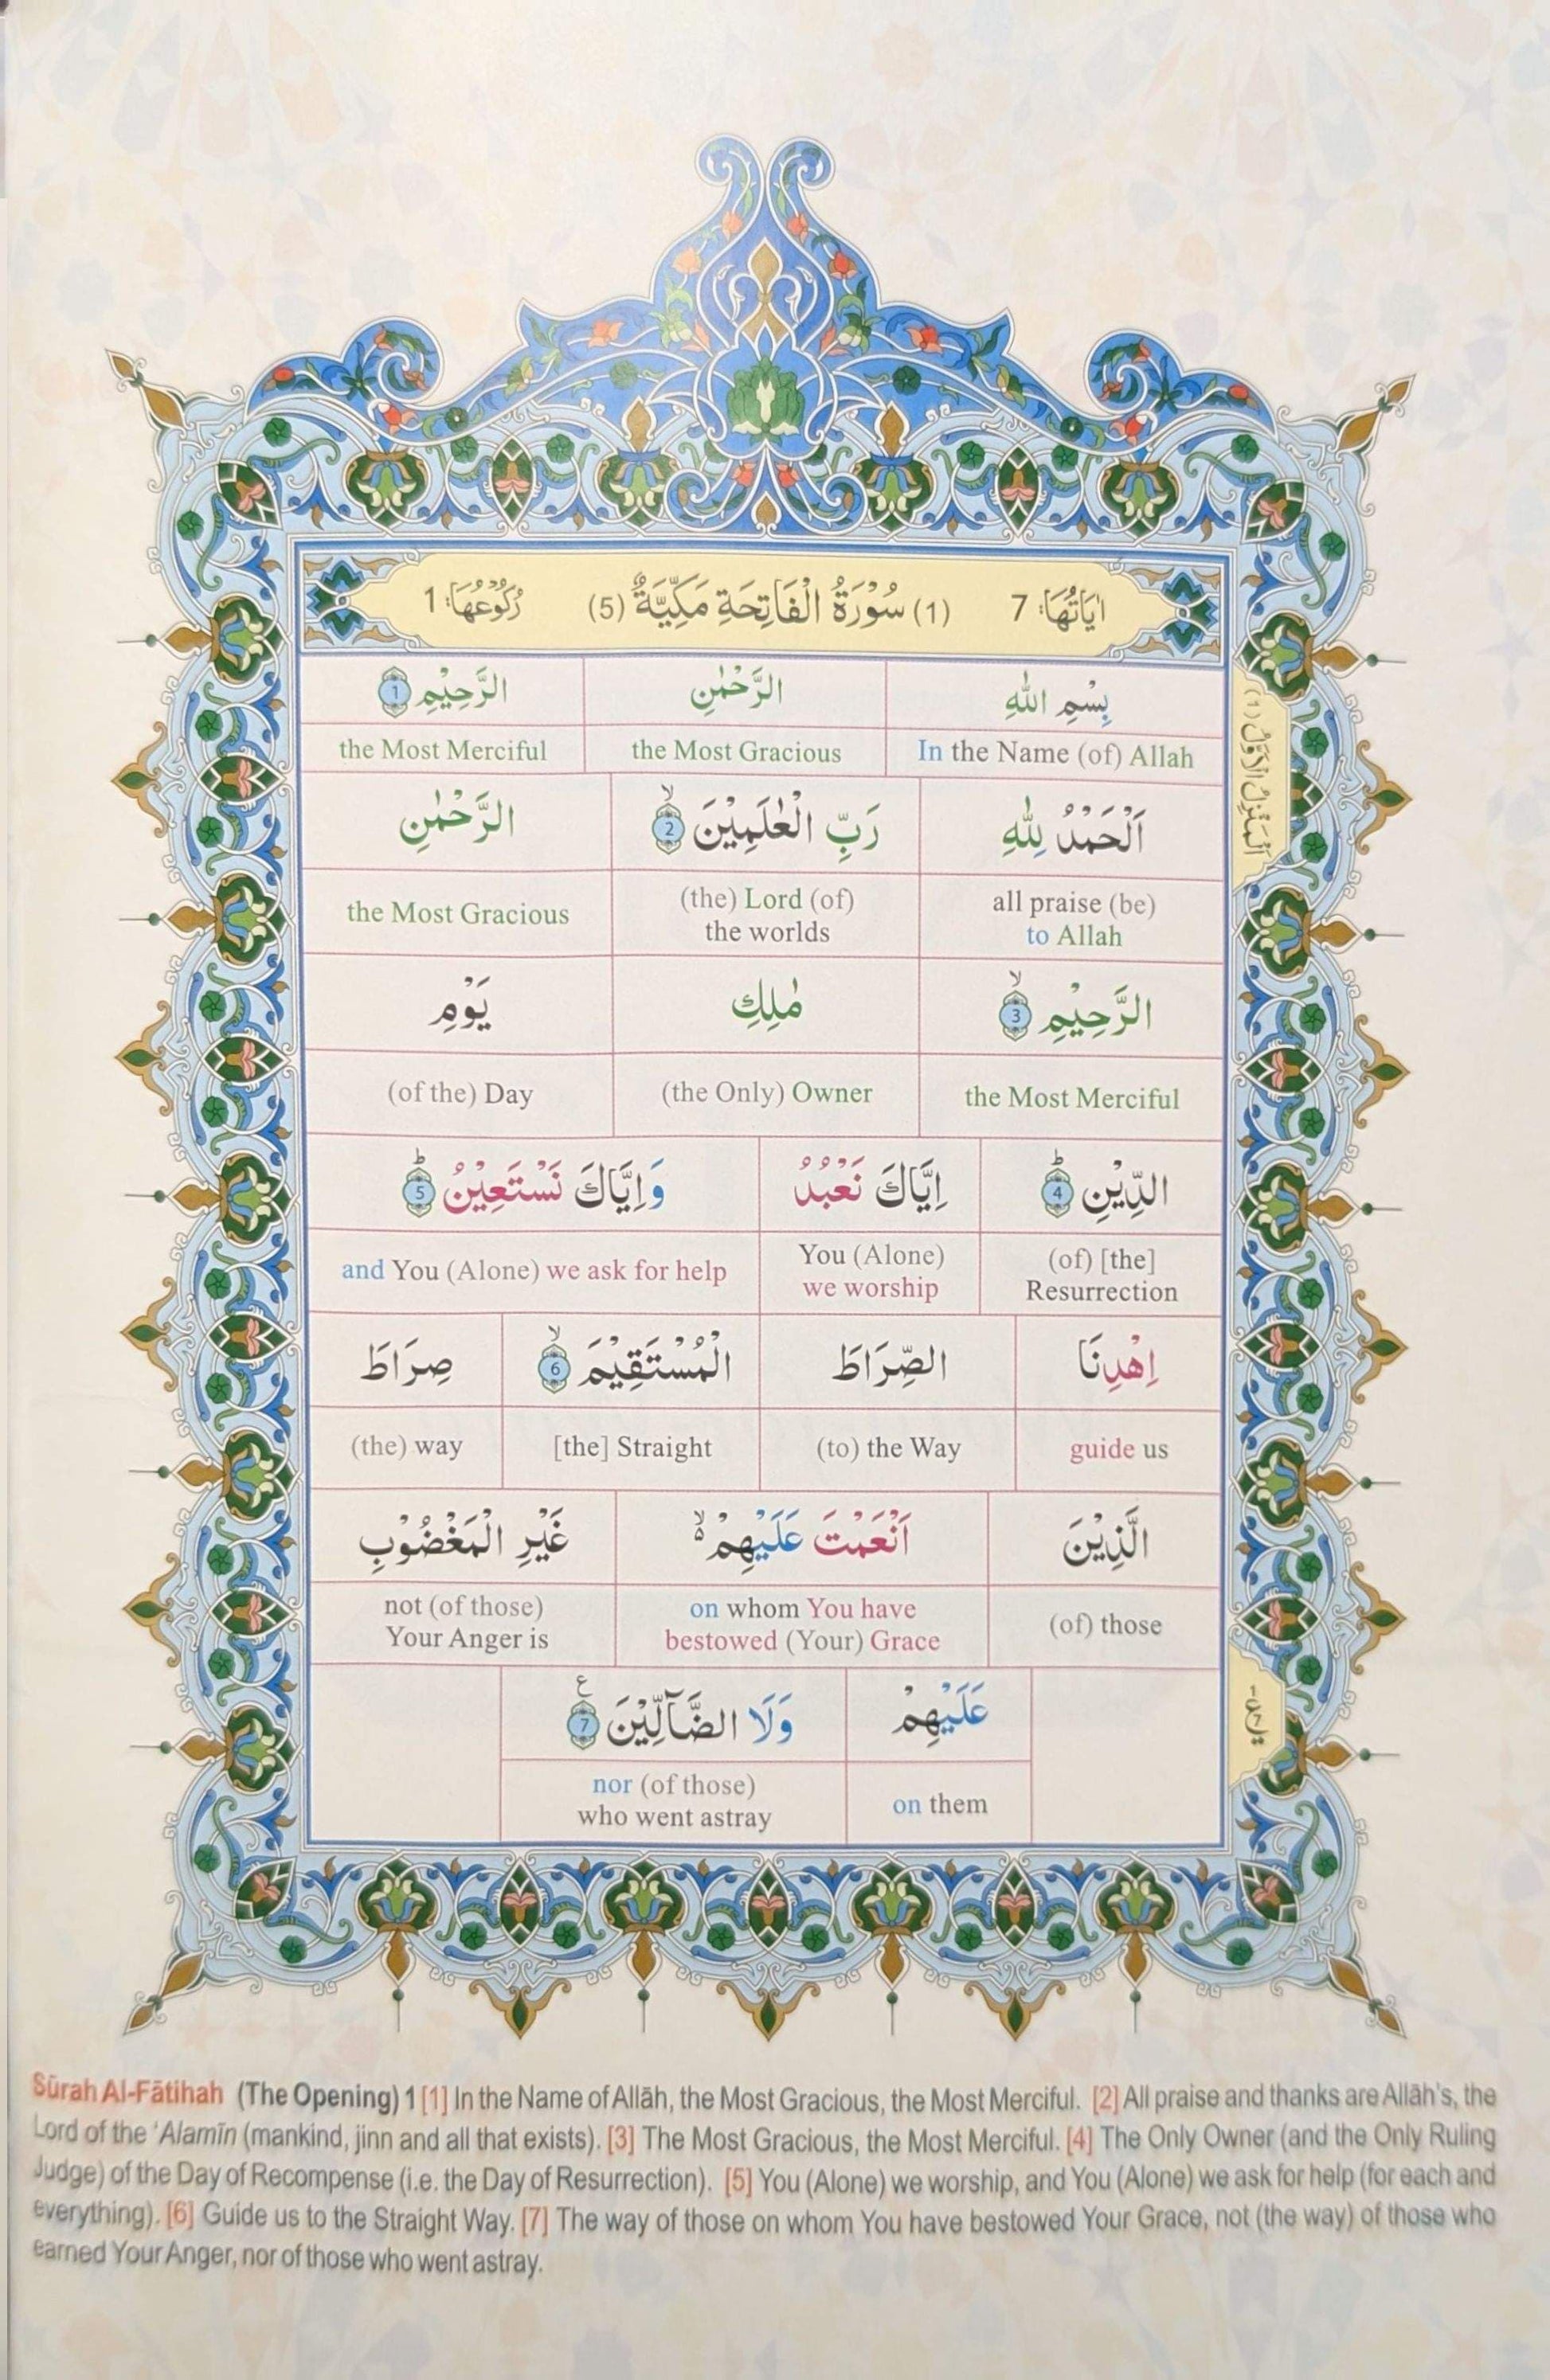 اٰيَاتُهَا: 7 (1) سُوْرَةُ الْفَاتِحَةِ مَكِّيَّةٌ (5) رُكُوْعُهَا: 1
بِسْمِ اللّٰهِ الرَّحْمٰنِ الرَّحِيْمِ 1
In the Name (of) Allah the Most Gracious the Most Merciful
اَلْحَمْدُ لِلّٰهِ رَبِّ الْعٰلَمِيْنَ 2 الرَّحْمٰنِ
all praise (be) to Allah (the) Lord (of) the worlds the Most Gracious
الرَّحِيْمِ 3 مٰلِكِ يَوْمِ
the Most Merciful (the Only) Owner (of the) Day
الدِّيْنِ 4 اِيَّاكَ نَعْبُدُ وَاِيَّاكَ نَسْتَعِيْنُ 5
(of) [the] Resurrection You (Alone) we worship and You (Alone) we ask for help
اِهْدِنَا الصِّرَاطَ الْمُسْتَقِيْمَ 6 صِرَاطَ
guide us (to) the Way [the] Straight (the) way
الَّذِيْنَ اَنْعَمْتَ عَلَيْهِمْ غَيْرِ الْمَغْضُوْبِ
(of) those on whom You have bestowed (Your) Grace not (of those) Your Anger is
عَلَيْهِمْ وَلَا الضَّآلِّيْنَ 7
on them nor (of those) who went astray
اَلْمَنْزِلُ الْاَوَّلُ (1)
Sūrah Al-Fātihah (The Opening) 1 [1] In the Name of Allāh, the Most Gracious, the Most Merciful. [2] All praise and thanks are Allāh's, the
Lord of the 'Alamīn (mankind, jinn and all that exists). [3] The Most Gracious, the Most Merciful. [4] The Only Owner (and the Only Ruling
Judge) of the Day of Recompense (i.e. the Day of Resurrection). [5] You (Alone) we worship, and You (Alone) we ask for help (for each and
everything). [6] Guide us to the Straight Way. [7] The way of those on whom You have bestowed Your Grace, not (the way) of those who
earned Your Anger, nor of those who went astray.